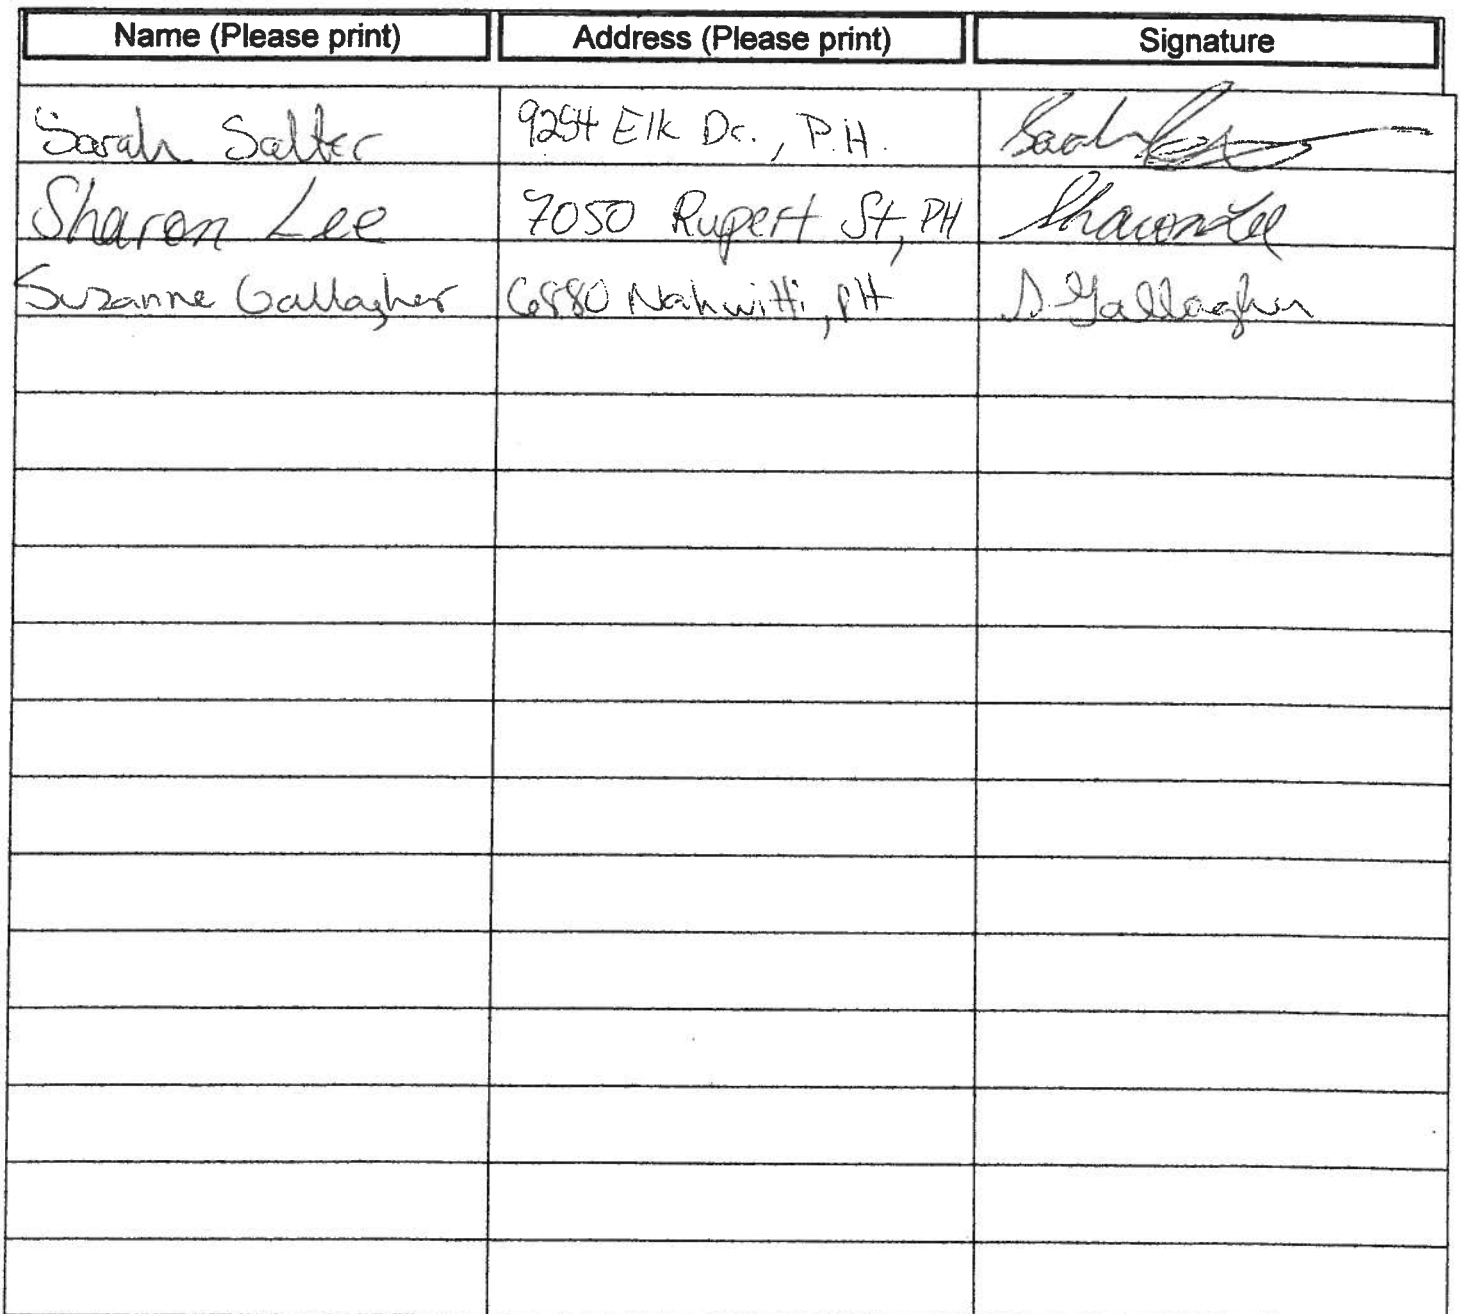 Name (Please print) Address (Please print) Signature
Sarah Salter 9254 Elk Dr., P.H. Sarah
Sharon Lee 7050 Rupert St, PH Sharon Lee
Suzanne Gallagher 6880 Nahwitti, PH S Gallagher